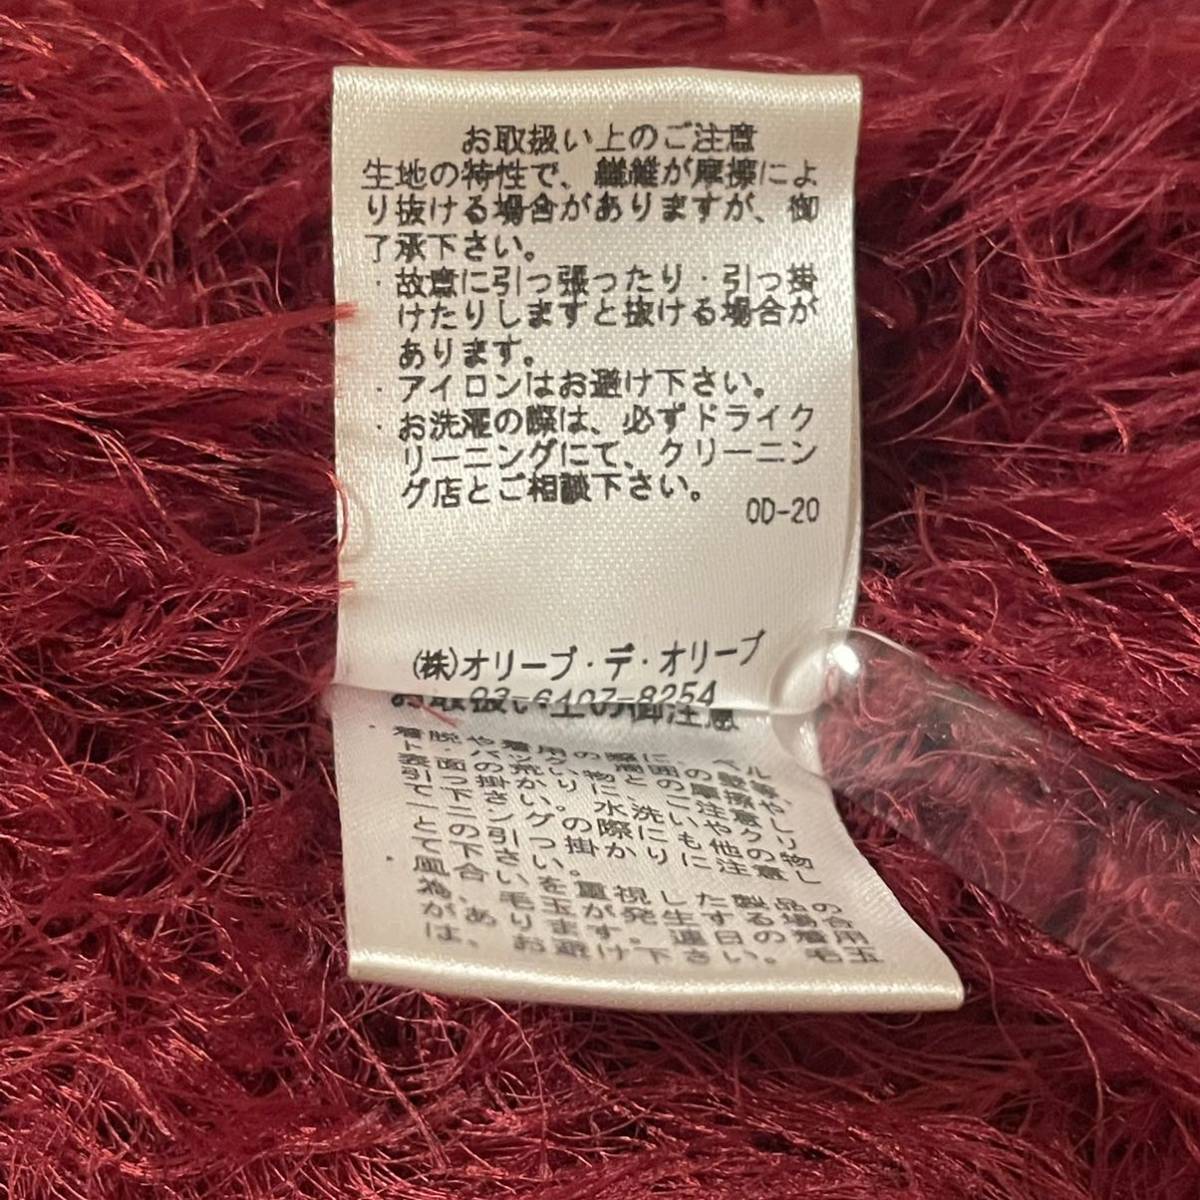 お取扱い上のご注意
生地の特性で、繊維が摩擦によ
り抜ける場合がありますが、御
了承下さい。
・故意に引っ張ったり・引っ掛
けたりしますと抜ける場合が
あります。
・アイロンはお避け下さい。
・お洗濯の際は、必ずドライク
リーニングにて、クリーニン
グ店とご相談下さい。
OD-20
(株)オリーブ・デ・オリーブ
03-6407-8254
お取扱い上の御注意
・着脱や着用の際に、ベル
ト・バッグ、周囲の鋭等や、
表面の荒い物との摩擦や
引っ掛かりに、ご注意し
て下さい。水洗いやクリ
ーニングの際にも他の物
との引っ掛かりに注意し
て下さい。
・風合いを重視した製品の
為、毛玉が発生する場合
があります。連日の着用
は、お避け下さい。毛玉